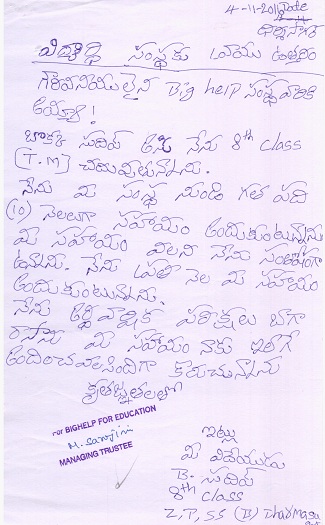 4-11-2011 Date
ధర్మసాగర్
విద్యార్థి సంస్థకు వ్రాయు ఉత్తరం
గౌరవనీయులైన Big help సంస్థవారికి
అయ్యా!
బొక్క సుదీప్ అనే నేను 8th class
(T.M) చదువుతున్నాను.
నేను మీ సంస్థ నుండి గత పది
(10) నెలలుగా సహాయం అందుకుంటున్నాను
మీ సహాయం వలన నేను సంతోషంగా
ఉన్నాను. నేను ప్రతి నెల మీ సహాయం
అందుకుంటున్నాను.
నేను అర్థ వార్షిక పరీక్షలు బాగా
రాసాను మీ సహాయం నాకు ఇలాగే
అందించవలసిందిగా కోరుచున్నాను
కృతజ్ఞతలతో
ఇట్లు
మీ విదేయుడు
B. సుదీప్
8th class
Z.P.SS (B) Dharmasa
For BIGHELP FOR EDUCATION
MANAGING TRUSTEE